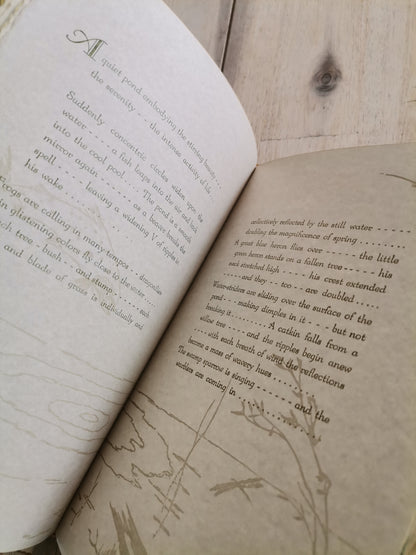 A quiet pond embodying the stirring beauty - -
the serenity - - the intense activity of life.
Suddenly concentric circles widen upon the
water - - - - a fish leaps into the air and back
into the cool pool. . . . The pond is a smooth
mirror again - - - - as a beaver breaks the
spell - - - - leaving a widening V of ripples in
his wake . . . .
Frogs are calling in many tempos - dragonflies
in glistening colors fly close to the water. . . . each
tree - bush - - and stump - - - - each
and blade of grass is individually and
collectively reflected by the still water - - - -
doubling the magnificence of spring . . . . . . . . .
A great blue heron flies over - - - - the little
green heron stands on a fallen tree - - - - his
neck stretched high - - - - his crest extended
- - - - and they - - too - - are doubled . . . .
Water-striders are sliding over the surface of the
pond - - - - making dimples in it - - - - but not
breaking it . . . . . . . . . A catkin falls from a
willow tree - - - - and the ripples begin anew
. . . . with each breath of wind the reflections
become a mass of wavery hues . . . . . . . . .
The swamp sparrow is singing - - - - and the
warblers are coming in . . . . . . . . . . . . .